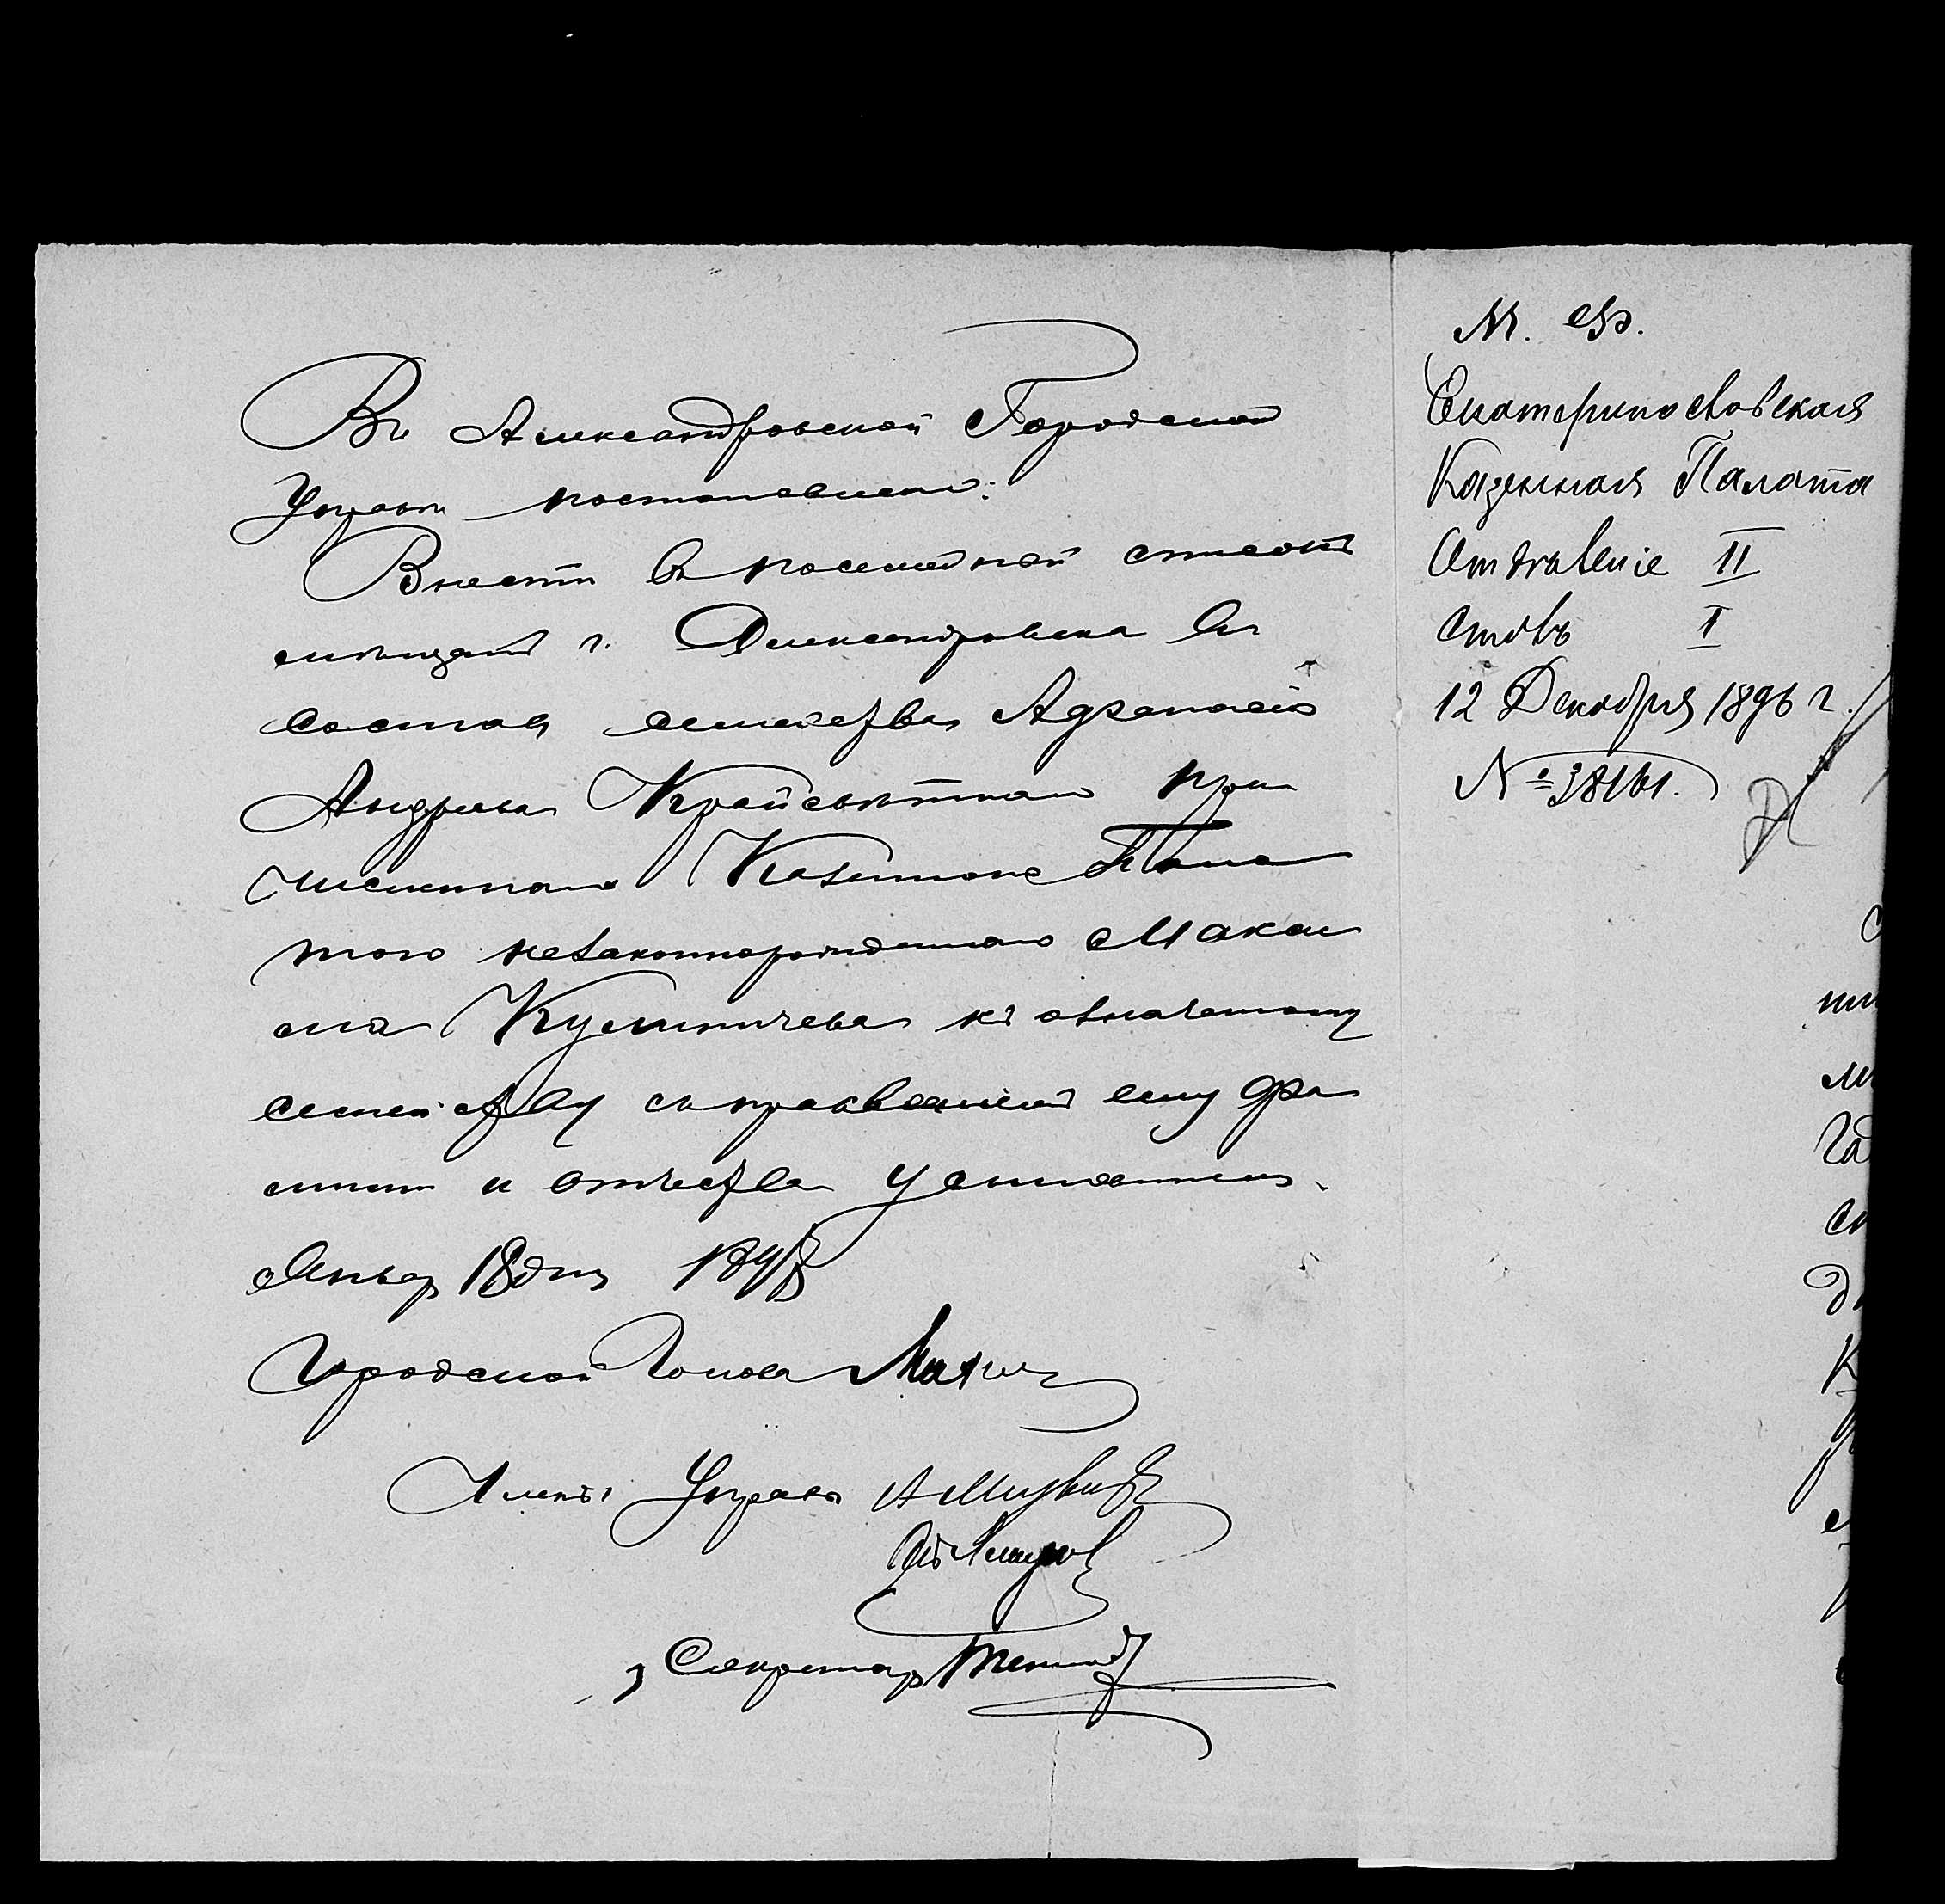 Въ Александровской Городской
Управѣ постановлено:
Внести въ посемейный списокъ
мѣщанъ г. Александровска въ
составъ семейства Афанасія
Андреева Крайсвѣтнаго при
численнаго Казенною Пала
тою незаконнорожденнаго Макси
ма Кулиничева къ означенному
семейству съ присвоеніемъ ему фа
миліи и отчества усыновителя.
Января 18 дня 1897
Городской Голова
Члены Управы
Секретарь
М. Ф.
Екатеринославская
Казенная Палата
Отдѣленіе II
Столъ I
12 Декабря 1896 г.
№ 38161.